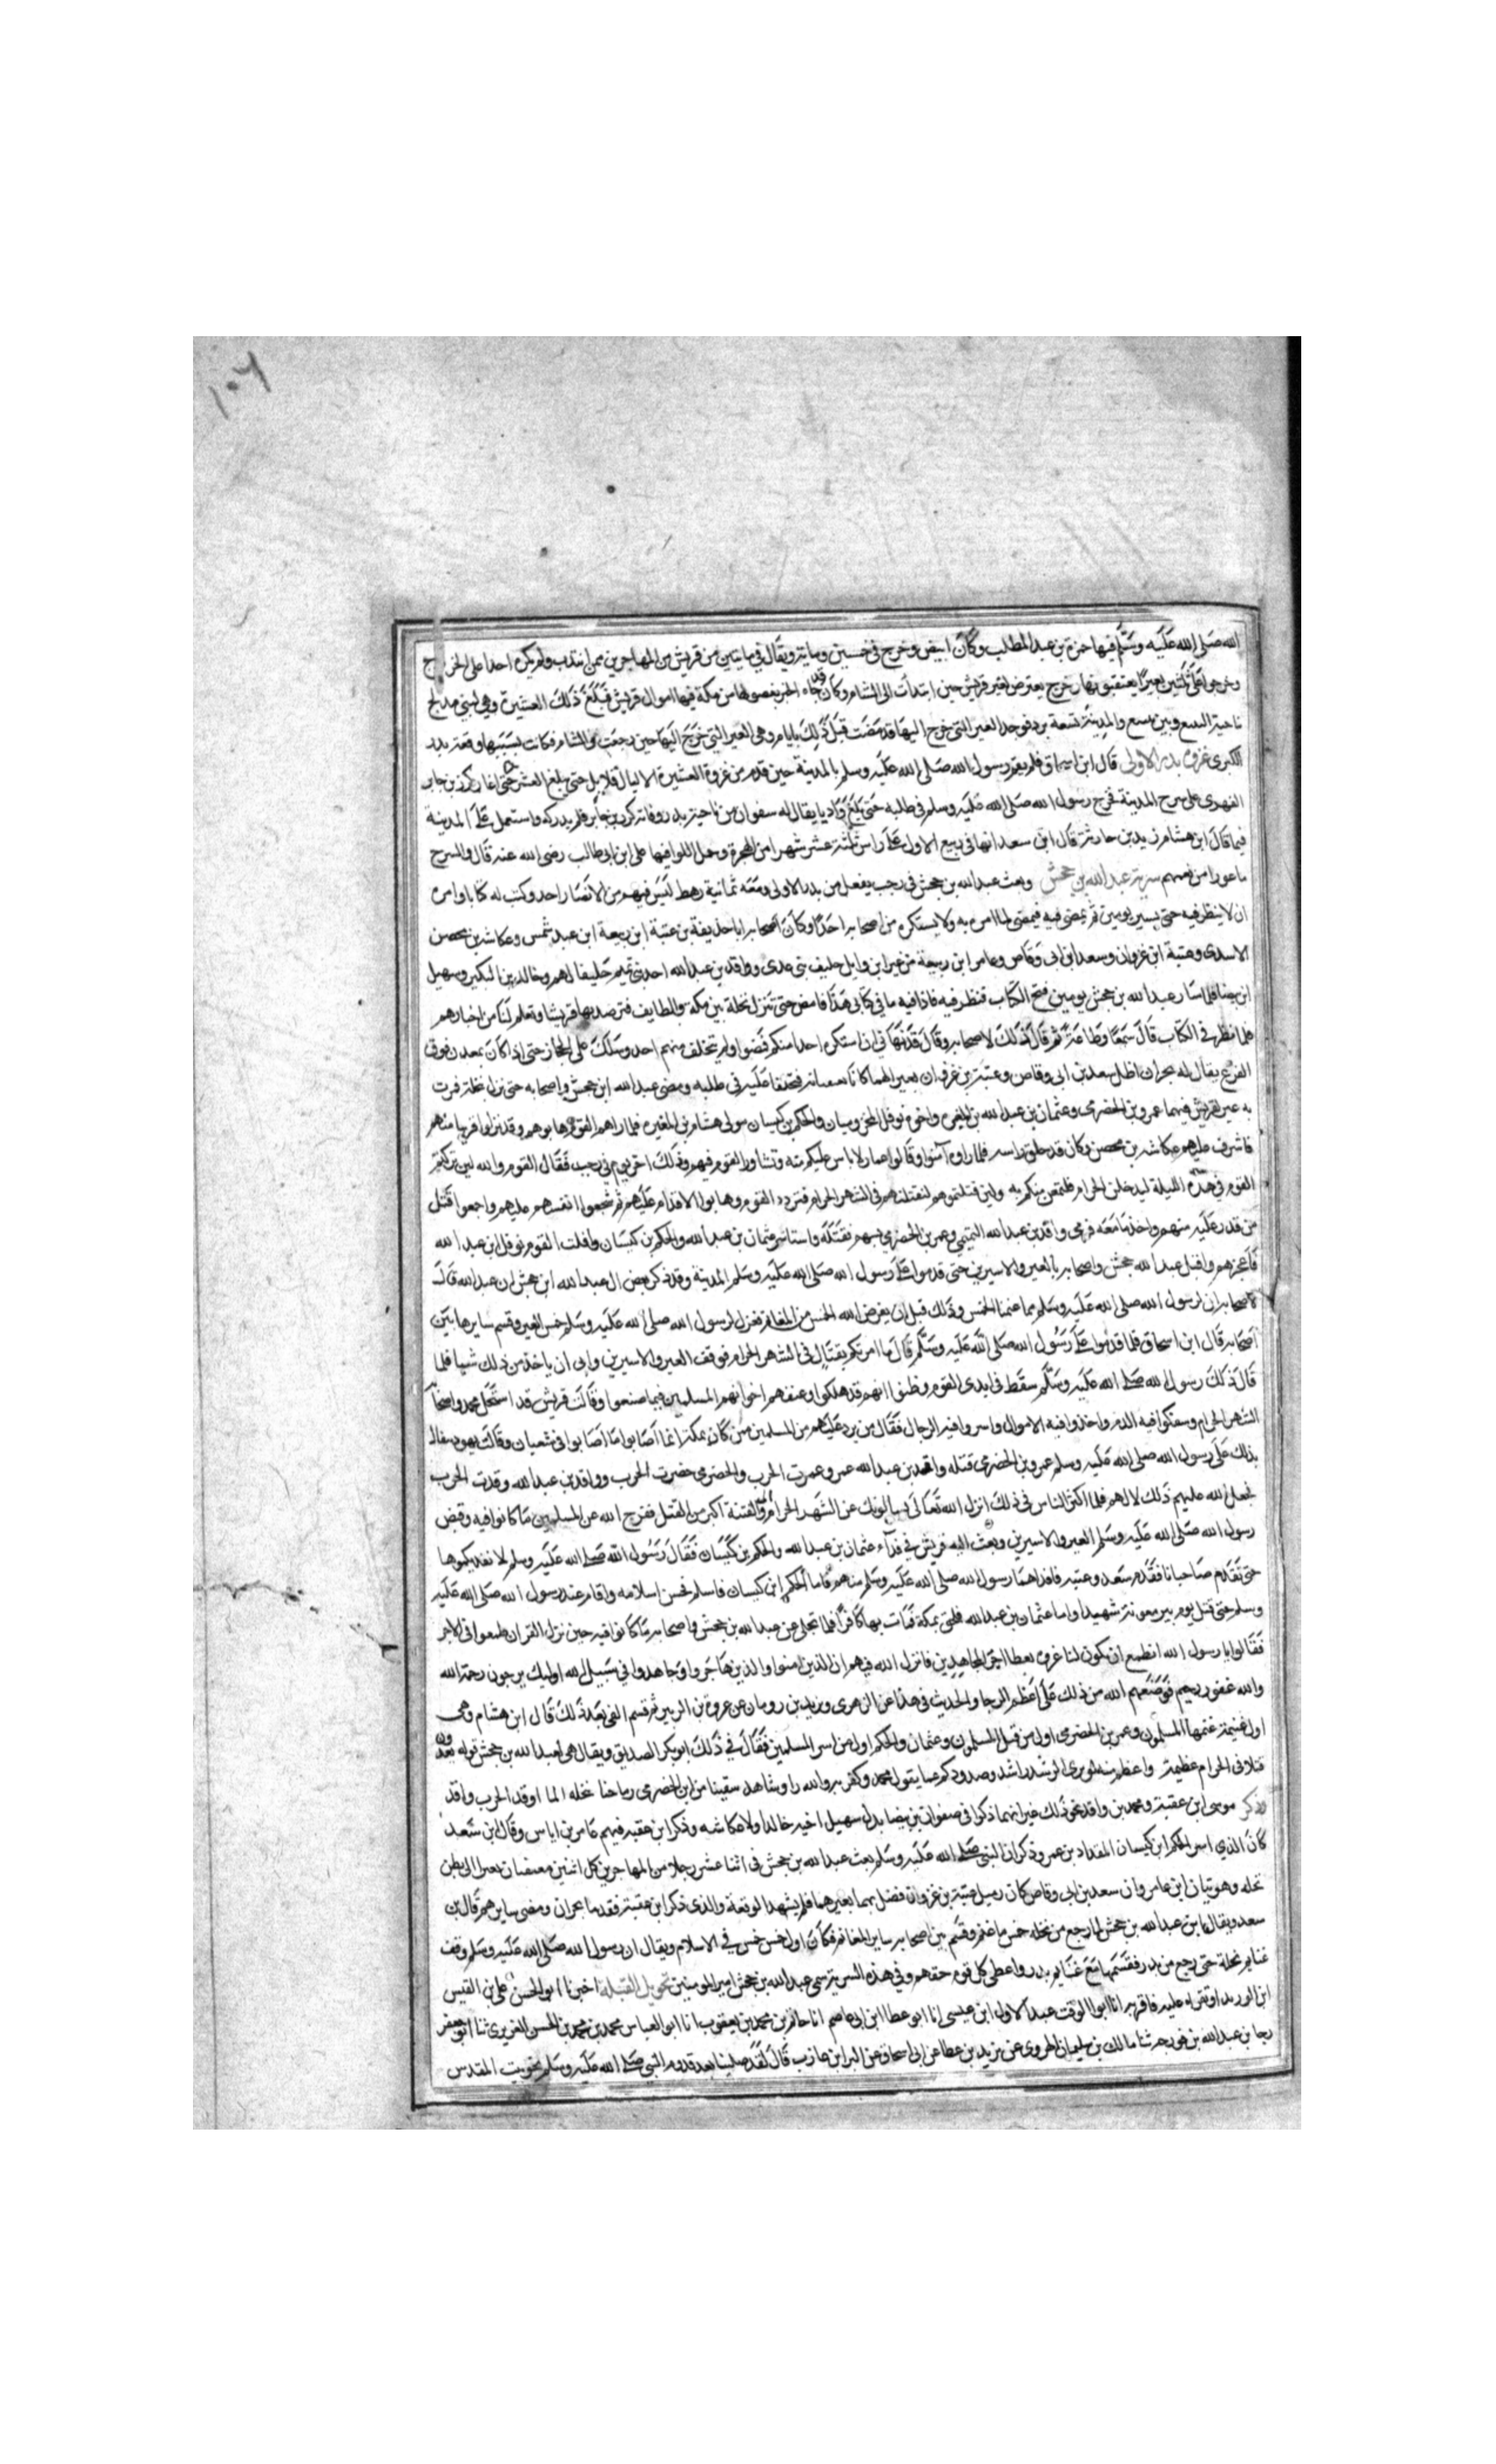 ١٠٦
الله صلى الله عليه وسلم فيها حمزة بن عبد المطلب وكان ابيض وخرج في خمسين وماية ويقال في مايتين من قريش من المهاجرين ممن انتدب ولم يكره احدا على الخروج
وخرجوا على ثلثين بعيرا يعتقبونها خرج يعترض لعير قريش حين ابتدأت الى الشام وكان قد جاء الخبر بفصولها من مكة فيها اموال قريش فبلغ ذلك العشيرة وهي لبني مدلج
ناحية الينبع وبين ينبع والمدينة تسعة برد فوجد العير التي خرج اليها قد مضت قبل ذلك بايام وهي العير التي خرج اليها حين رجعت من الشام فكانت بسببها وقعة بدر
الكبرى غزوة بدر الاولى قال ابن اسحاق فلم يقم رسول الله صلى الله عليه وسلم بالمدينة حين قدم من غزوة العشيرة الا ليال قلايل حتى يبلغ العشر حتى اغار كرز بن جابر
الفهري على سرح المدينة فخرج رسول الله صلى الله عليه وسلم في طلبه حتى بلغ واديا يقال له سفوان من ناحية بدر وفاته كرز بن جابر فلم يدركه واستعمل على المدينة
فيما قال ابن هشام زيد بن حارثة قال ابن سعد انها في ربيع الاول على راس ثلثة عشر شهرا من الهجرة وحمل اللوا فيها على ابن ابي طالب رضي الله عنه قال والسرح
ما عورا من نعمهم سرية عبد الله بن جحش وبعث عبد الله بن جحش في رجب مقفل من بدر الاولى ومعه ثمانية رهط ليس فيهم من الانصار احد وكتب له كتابا وامره
ان لا ينظر فيه حتى يسير يومين ثم يمضي فيه فيمضي لما امره به ولا يستكره من اصحابه احدا وكان اصحابه ابا حذيفة بن عتبة ابن ربيعة ابن عبد شمس وعكاشة بن محصن
الاسدي وعتبة ابن غزوان وسعد ابن ابي وقاص وعامر ابن ربيعة من عير ابن وايل حليف بني عدي وواقد بن عبد الله احد بني تميم حليفا لهم وخالد بن البكير وسهيل
ابن بيضا فلما سار عبد الله بن جحش يومين فتح الكتاب فنظر فيه فاذا فيه ما في كتابي هذا فامض حتى تنزل نخلة بين مكة والطايف فترصد بها قريشا وتعلم لنا من اخبارهم
فلما نظر في الكتاب قال سمعا وطاعة ثم قال ذلك لاصحابه وقال قد نهاني ان استكره احدا منكم فمضوا ولم يتخلف منهم احد وسلك على الحجاز حتى اذا كان بمعدن فوق
الفرع يقال له بحران اظل سعد بن ابي وقاص وعتبة بن غزوان بعير لهما كانا يعتقبانه فتخلفا عليه في طلبه ومضى عبد الله ابن جحش واصحابه حتى نزل نخلة فمرت
به عير لقريش فيها عمرو بن الحضرمي وعثمان بن عبد الله بن المغيره واخوه نوفل المخزوميان والحكم بن كيسان مولى هشام بن المغيره فلما راهم القوم هابوهم وقد نزلوا قريبا منهم
فاشرف عليهم عكاشه بن محصن وكان قد حلق راسه فلما راوه آمنوا وقالوا عمار لا باس عليكم منه وتشاور القوم فيهم وذلك اخر يوم في رجب فقال القوم والله لين تركتم
القوم في هذه الليلة ليدخلن الحرام فليمتنعن منكم به ولين قتلتموهم لتقتلنهم في الشهر الحرام فتردد القوم وهابوا الاقدام عليهم ثم شجعوا انفسهم عليهم واجمعوا قتل
من قدر عليه منهم واخذ ما معه فرمى واقد بن عبد الله التميمي وعمرو بن الحضرمي بسهم فقتله واستاسر عثمان بن عبد الله والحكم بن كيسان وافلت القوم نوفل ابن عبد الله
فاعجزهم واقبل عبد الله جحش واصحابه بالعير والاسيرين حتى قدموا على رسول الله صلى الله عليه وسلم المدينة وقد ذكر بعض ال عبد الله ابن جحش ان عبد الله قال
لاصحابه ان لرسول الله صلى الله عليه وسلم مما غنمنا الخمس وذلك قبل ان يفرض الله الخمس من المغانم فعزل لرسول الله صلى الله عليه وسلم خمس العير وقسم سايرها بين
اصحابه قال ابن اسحاق فلما قدموا على رسول الله صلى الله عليه وسلم قال ما امرتكم بقتال في الشهر الحرام فوقف العير والاسيرين وابى ان ياخذ من ذلك شيا فلما
قال ذلك رسول الله صلى الله عليه وسلم سقط في ايدي القوم وظنوا انهم قد هلكوا وعنفهم اخوانهم المسلمين فيما صنعوا وقالت قريش قد استحل محمد واصحابه
الشهر الحرام وسفكوا فيه الدم واخذوا فيه الاموال واسروا فيه الرجال فقال من يرد عليهم من المسلمين ممن كان بمكة انما اصابوا ما اصابوا في شعبان وقالت يهود تفال
بذلك على رسول الله صلى الله عليه وسلم عمرو بن الحضرمي قتله واقد بن عبد الله عمرو عمرت الحرب والحضرمي حضرت الحرب وواقد بن عبد الله وقدت الحرب
فجعل الله عليهم ذلك لا لهم فلما اكثر الناس في ذلك انزل الله تعالى يسالونك عن الشهر الحرام والفتنة اكبر من القتل ففرج الله عن المسلمين ما كانوا فيه وقبض
رسول الله صلى الله عليه وسلم العير والاسيرين وبعث اليه قريش في فداء عثمان بن عبد الله والحكم بن كيسان فقال رسول الله صلى الله عليه وسلم لا نفديكموها
حتى تقدم صاحبانا فقدم سعد وعتبه فافداهما رسول الله صلى الله عليه وسلم منهم فاما الحكم ابن كيسان فاسلم فحسن اسلامه واقام عند رسول الله صلى الله عليه
وسلم حتى قتل يوم بير معونة شهيدا واما عثمان بن عبد الله فلحق بمكة فمات بها كافرا فلما تجلى عن عبد الله بن جحش واصحابه ما كانوا فيه حين نزل القران طمعوا في الاجر
فقالوا يا رسول الله انطمع ان يكون لنا غزوه نعطا اجر المجاهدين فانزل الله فيهم ان الذين امنوا والذين هاجروا وجاهدوا في سبيل الله اوليك يرجون رحمة الله
والله غفور رحيم فوضعهم الله من ذلك على اعظم الرجا والحديث في هذا عن الزهري ويزيد بن رومان عن عروة بن الزبير ثم قسم الفي بعد ذلك قال ابن هشام وهي
اول غنيمة غنمها المسلمون وعمرو بن الحضرمي اول من قتل المسلمون وعثمان والحكم اول من اسر المسلمين فقال في ذلك ابو بكر الصديق ويقال هي لعبد الله بن جحش قوله تعدون
قتلا في الحرام عظيمة واعظم منه لو يرى الرشد راشد وصدودكم عما يقول محمد وكفر به والله راء وشاهد سقينا من ابن الحضرمي رماحنا بنخله لما اوقد الحرب واقد
وذكر موسى ابن عقبة ومحمد بن واقد نحو ذلك غير انهما ذكرا في صفوان بن بيضا بدل سهيل اخيه خالدا ولا عكاشه وذكر ابن عقبه فيهم عامر بن اياس وقال ابن سعد
كان الذي اسر الحكم ابن كيسان المقداد بن عمرو وذكر ان النبي صلى الله عليه وسلم بعث عبد الله بن جحش في اثنا عشر رجلا من المهاجرين كل اثنين يعتقبان بعيرا الى بطن
نخله وهو بستان ابن عامر وان سعد بن ابي وقاص كان زميل عتبة بن غزوان فضل بهما بعيرهما فلم يشهدا الوقعة والذي ذكر ابن عقبة فقدما بحران ومضى سايرهم قال بن
سعد ويقال ان عبد الله بن جحش لما رجع من نخله خمس ما غنم وقسم بين اصحابه ساير المغانم فكان اول خمس خمس في الاسلام ويقال ان رسول الله صلى الله عليه وسلم وقف
غنايم نخلة حتى رجع من بدر فقسمها مع غنايم بدر واعطى كل قوم حقهم وفي هذه السرية سمي عبد الله بن جحش امير المومنين تحويل القبلة اخبرنا ابو الحسن علي بن القيس
ابن الوريد او نقراه عليه فاقر به انا ابو الوقت عبد الاول ابن عيسى انا ابو عطا ابن ابي عاصم انا حاتم بن محمد بن يعقوب انا ابو العباس محمد بن محمد بن الحسن الفريزي ثنا ابو جعفر
رجا بن عبد الله بن ثنا مالك بن سليمان الهروي عن يزيد بن عطا عن ابي اسحاق عن البرا بن عازب قال لقد صلينا بعد قدوم النبي صلى الله عليه وسلم نحو بيت المقدس